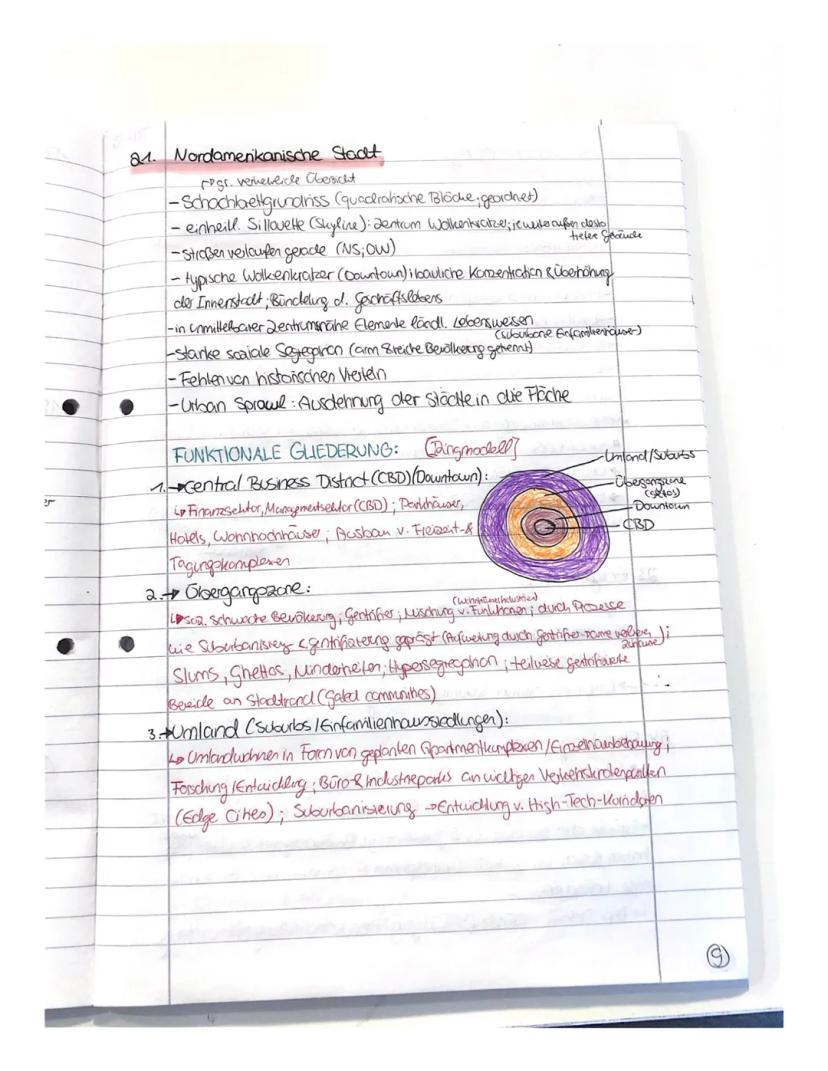 21. Nordamerikanische Stadt
↱gr. verkehrliche Übersicht
- Schachbrettgrundriss (quadratische Blöcke; geordnet)
- einheitl. Sillouette (Skyline): Zentrum Wolkenkratzer; je weiter außen desto
tiefer Gebäude
- Straßen verlaufen gerade (NS; OW)
- typische Wolkenkratzer (Downtown); bauliche Konzentration & Überhöhung
der Innenstadt; Bündelung d. Geschäftslebens
- in unmittelbarer Zentrumsnähe Elemente ländl. Lebensweisen
(suburbane Einfamilienhäuser)
- starke soziale Segregation (arm & reiche Bevölkerung getrennt)
- Fehlen von historischen Vierteln
- Urban Sprawl: Ausdehnung der Städte in die Fläche
FUNKTIONALE GLIEDERUNG: [Ringmodell]
Umland/Suburbs
Übergangszone
Downtown
CBD
1. → Central Business District (CBD)/(Downtown):
↳ Finanzsektor, Managmentsektor (CBD); Parkhäuser,
Hotels, Wohnhochhäuser; Ausbau v. Freizeit- &
Tagungskomplexen
2. → Übergangszone:
↳ soz. schwache Bevölkerung; Gentrifier; Mischung v. Funktionen; durch Prozesse
wie Suburbanisierung & Gentrifizierung geprägt (Aufwertung durch Gentrifier
Slums, Ghettos, Minderheiten; Hypersegregation; teilweise gentrifizierte
Bereiche an Stadtrand (Gated communities)
3. → Umland (Suburbs/Einfamilienhaussiedlungen):
↳ Umlandwohnen in Form von geplanten Apartmentkomplexen/Einzelhausbebauung;
Forschung/Entwicklung; Büro- & Industrieparks an wichtigen Verkehrsknotenpunkten
(Edge Cities); Suburbanisierung → Entwicklung v. High-Tech-Korridoren
9